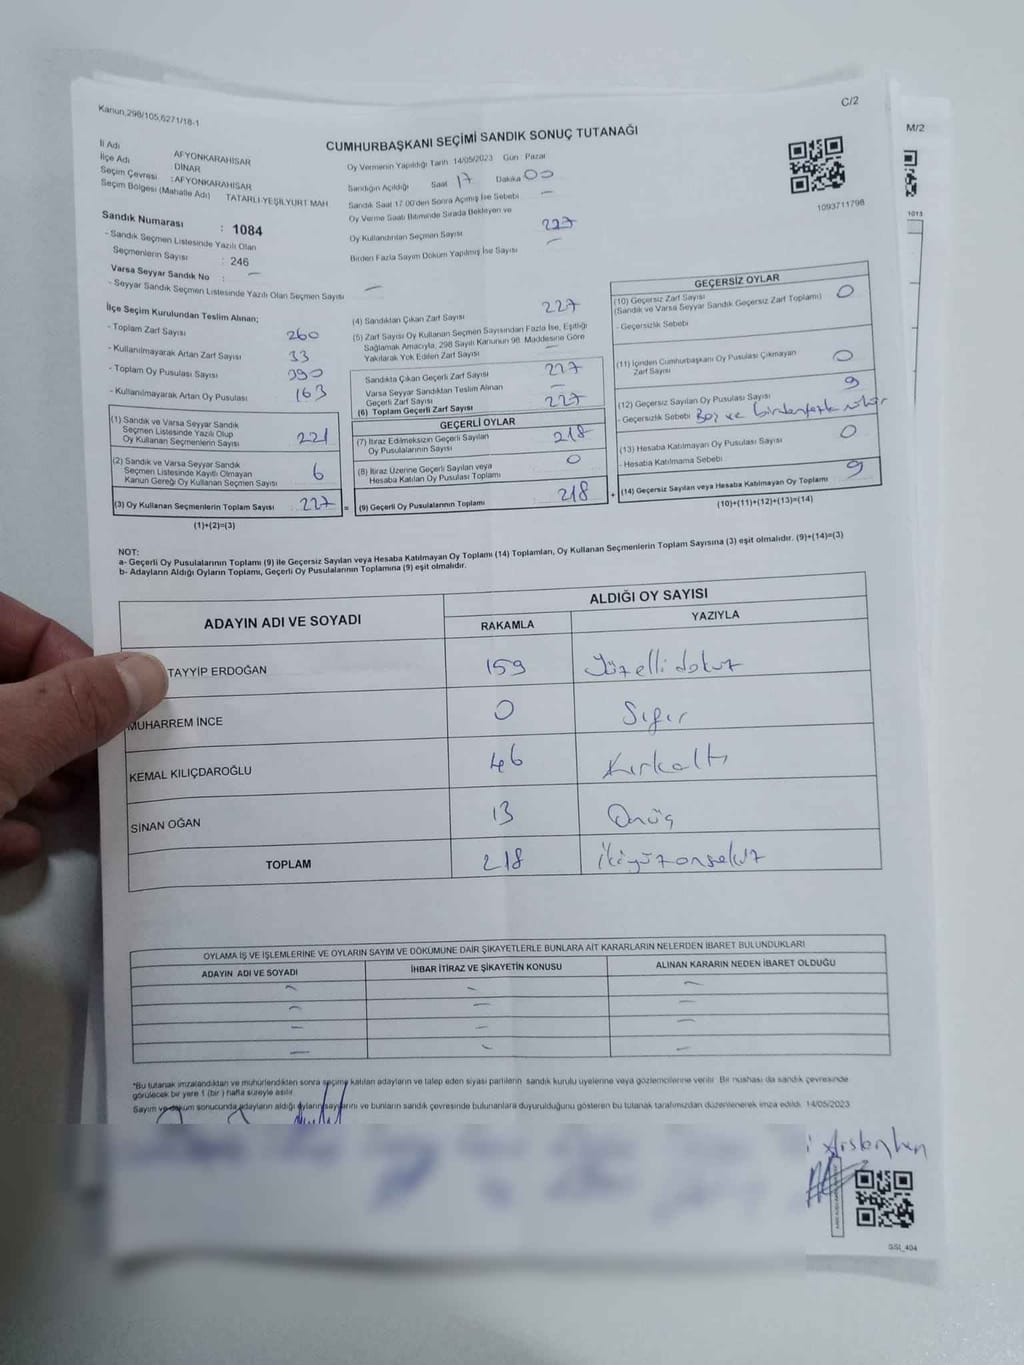 Kanun,298/105,6271/18-1
C/2
M/2
CUMHURBAŞKANI SEÇİMİ SANDIK SONUÇ TUTANAĞI
İl Adı AFYONKARAHİSAR
İlçe Adı DİNAR
Seçim Çevresi : AFYONKARAHİSAR
Seçim Bölgesi (Mahalle Adı) TATARLI-YEŞİLYURT MAH
Oy Vermenin Yapıldığı Tarih 14/05/2023 Gün Pazar
Sandığın Açıldığı Saat 17 Dakika 00
Sandık Saat 17:00'den Sonra Açmış İse Sebebi —
Oy Verme Saati Bitiminde Sırada Bekleyen ve
Oy Kullandırılan Seçmen Sayısı 227
Birden Fazla Sayım Döküm Yapılmış İse Sayısı —
1093711798
1013
Sandık Numarası : 1084
- Sandık Seçmen Listesinde Yazılı Olan
Seçmenlerin Sayısı : 246
Varsa Seyyar Sandık No : —
- Seyyar Sandık Seçmen Listesinde Yazılı Olan Seçmen Sayısı —
İlçe Seçim Kurulundan Teslim Alınan;
- Toplam Zarf Sayısı 260
- Kullanılmayarak Artan Zarf Sayısı 33
- Toplam Oy Pusulası Sayısı 390
- Kullanılmayarak Artan Oy Pusulası 163
(1) Sandık ve Varsa Seyyar Sandık
Seçmen Listesinde Yazılı Olup
Oy Kullanan Seçmenlerin Sayısı 221
(2) Sandık ve Varsa Seyyar Sandık
Seçmen Listesinde Kayıtlı Olmayan
Kanun Gereği Oy Kullanan Seçmen Sayısı 6
(3) Oy Kullanan Seçmenlerin Toplam Sayısı 227 =
(1)+(2)=(3)
(4) Sandıktan Çıkan Zarf Sayısı 227
(5) Zarf Sayısı Oy Kullanan Seçmen Sayısından Fazla İse, Eşitliği
Sağlamak Amacıyla, 298 Sayılı Kanunun 98. Maddesine Göre
Yakılarak Yok Edilen Zarf Sayısı —
Sandıkta Çıkan Geçerli Zarf Sayısı 227
Varsa Seyyar Sandıktan Teslim Alınan
Geçerli Zarf Sayısı —
(6) Toplam Geçerli Zarf Sayısı 227
GEÇERLİ OYLAR
(7) İtiraz Edilmeksizin Geçerli Sayılan
Oy Pusulalarının Sayısı 218
(8) İtiraz Üzerine Geçerli Sayılan veya
Hesaba Katılan Oy Pusulası Toplamı 0
(9) Geçerli Oy Pusulalarının Toplamı 218 +
GEÇERSİZ OYLAR
(10) Geçersiz Zarf Sayısı 0
(Sandık ve Varsa Seyyar Sandık Geçersiz Zarf Toplamı)
- Geçersizlik Sebebi
(11) İçinden Cumhurbaşkanı Oy Pusulası Çıkmayan
Zarf Sayısı 0
(12) Geçersiz Sayılan Oy Pusulası Sayısı 9
- Geçersizlik Sebebi Boş ve birden fazla mühür
(13) Hesaba Katılmayan Oy Pusulası Sayısı 0
- Hesaba Katılmama Sebebi
(14) Geçersiz Sayılan veya Hesaba Katılmayan Oy Toplamı 9
(10)+(11)+(12)+(13)=(14)
NOT:
a- Geçerli Oy Pusulalarının Toplamı (9) ile Geçersiz Sayılan veya Hesaba Katılmayan Oy Toplamı (14) Toplamları, Oy Kullanan Seçmenlerin Toplam Sayısına (3) eşit olmalıdır. (9)+(14)=(3)
b- Adayların Aldığı Oyların Toplamı, Geçerli Oy Pusulalarının Toplamına (9) eşit olmalıdır.
ADAYIN ADI VE SOYADI
ALDIĞI OY SAYISI
RAKAMLA YAZIYLA
TAYYİP ERDOĞAN 159 Yüzelli dokuz
MUHARREM İNCE 0 Sıfır
KEMAL KILIÇDAROĞLU 46 Kırkaltı
SİNAN OĞAN 13 Onüç
TOPLAM 218 İkiyüzonsekiz
OYLAMA İŞ VE İŞLEMLERİNE VE OYLARIN SAYIM VE DÖKÜMÜNE DAİR ŞİKAYETLERLE BUNLARA AİT KARARLARIN NELERDEN İBARET BULUNDUKLARI
ADAYIN ADI VE SOYADI İHBAR İTİRAZ VE ŞİKAYETİN KONUSU ALINAN KARARIN NEDEN İBARET OLDUĞU
— — —
— — —
— — —
— — —
*Bu tutanak imzalandıktan ve mühürlendikten sonra seçime katılan adayların ve talep eden siyasi partilerin sandık kurulu üyelerine veya gözlemcilerine verilir. Bir nüshası da sandık çevresinde
görülecek bir yere 1 (bir) hafta süreyle asılır.
Sayım ve döküm sonucunda adayların aldığı oyların sayılarını ve bunların sandık çevresinde bulunanlara duyurulduğunu gösteren bu tutanak tarafımızdan düzenlenerek imza edildi. 14/05/2023
GSI_404